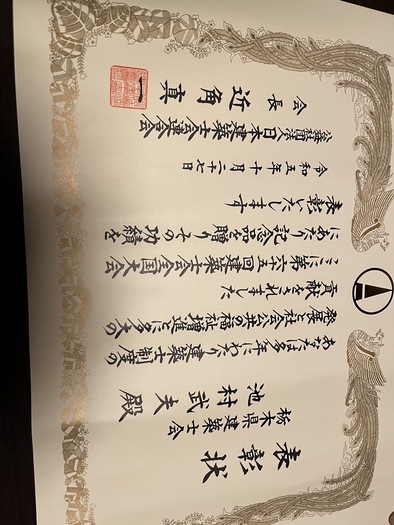 表彰状
栃木県建築士会
池村武夫殿
あなたは多年にわたり建築士制度の
発展と社会公共の福祉増進に多大の
貢献をされました
ここに第六十五回建築士会全国大会
にあたり記念品を贈りその功績を
表彰いたします
令和五年十月二十七日
公益社団法人日本建築士会連合会
会長 近角真一